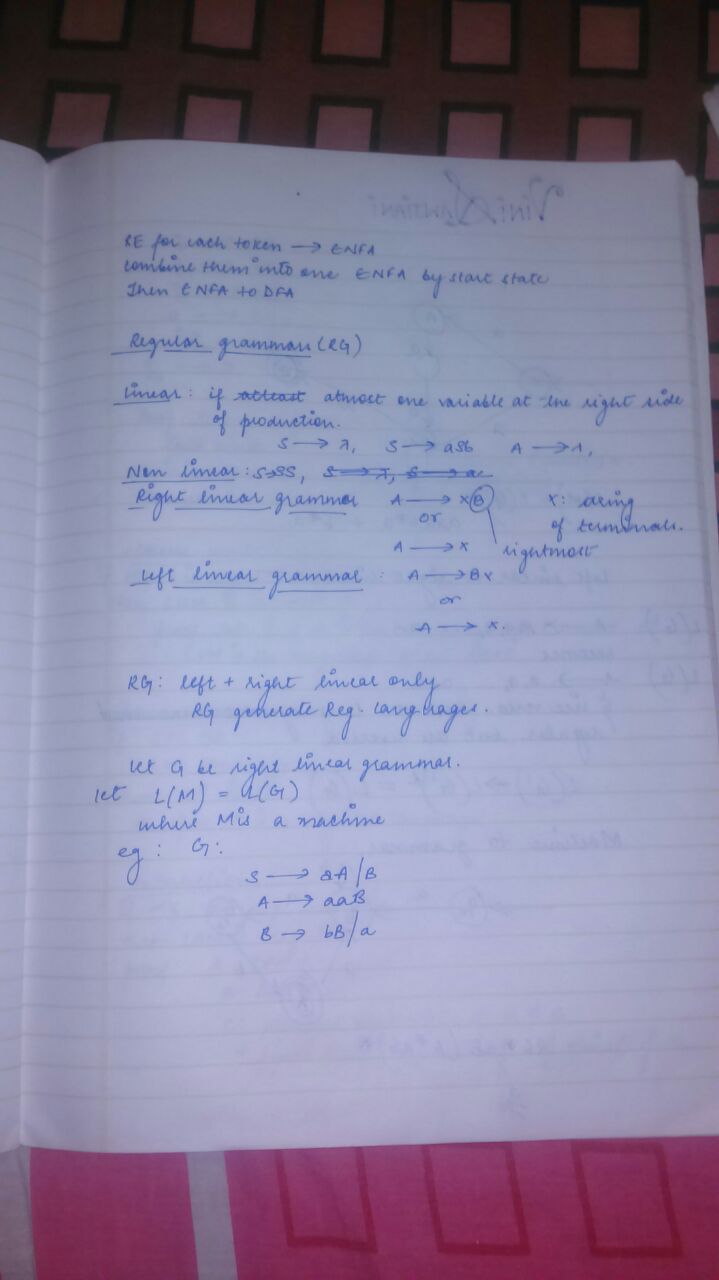 RE for each token → ENFA
combine them into one ENFA by start state
Then ENFA to DFA
Regular grammar (RG)
Linear : if atleast atmost one variable at the right side
of production.
S → λ, S → aSb A → λ,
Non linear : S→SS, S → λ, S → a
Right linear grammar A → xB x: string
or of terminals.
A → x rightmost
left linear grammar : A → Bx
or
A → x.
RG : left + right linear only
RG generate Reg. languages.
let G be right linear grammar.
let L(M) = L(G)
where M is a machine
eg : G :
S → aA/B
A → aaB
B → bB/a